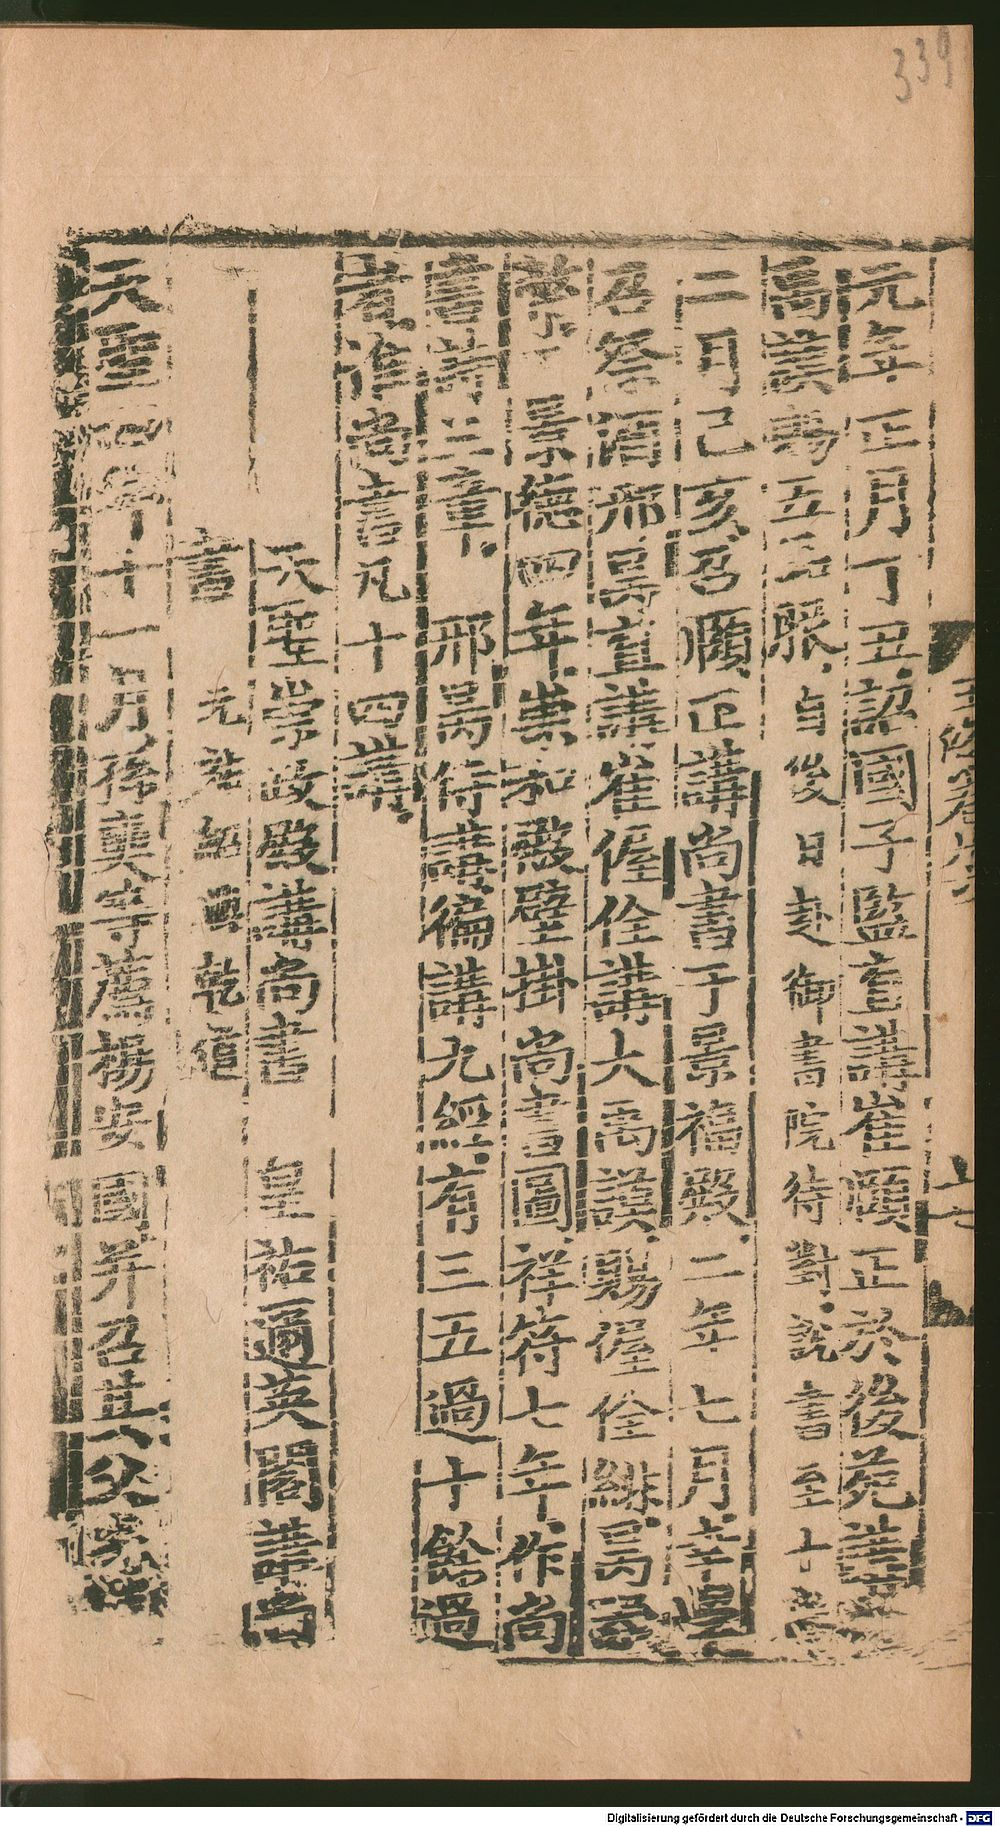 339
元年正月丁丑詔國子監直講崔頤正於後苑講
禹謨賜五品服自後日赴御書院待對說書至十
二月己亥召頤正講尚書于景福殿二年七月幸
召祭酒邢昺直講崔偓佺講大禹謨賜偓佺緋昺
景德四年崇和殿壁掛尚書圖祥符七年作尚
書詩三章邢昺侍講徧講九經有三五過十餘過
者惟尚書凡十四講
天聖崇政殿講尚書 皇祐邇英閣講尚
書 元祐紹興乾道
天聖四年十一月孫奭等薦楊安國并召其父
Digitalisierung gefördert durch die Deutsche Forschungsgemeinschaft - DFG